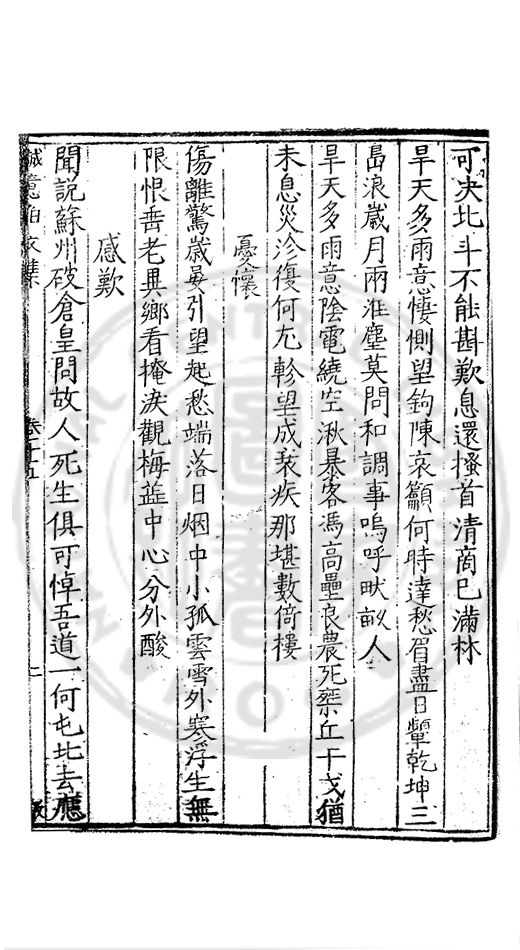 可决北斗不能斟歎息還搔首清商已滿林
旱天多雨意悽側望鉤陳哀籲何時達愁眉盡日顰乾坤三
島浪歲月兩淮塵莫問和調事嗚呼畎畝人
旱天多雨意陰電繞空湫暴客馮高壘良農死槩丘干戈猶
未息災沴復何尤軫望成衰疾那堪數倚樓
憂懷
傷離驚歲晏引望起愁端落日烟中小孤雲雪外寒浮生無
限恨垂老異鄉看掩淚觀梅蘂中心分外酸
感歎
聞說蘇州破倉皇問故人死生俱可悼吾道一何屯北去應
誠意伯文集 卷十五